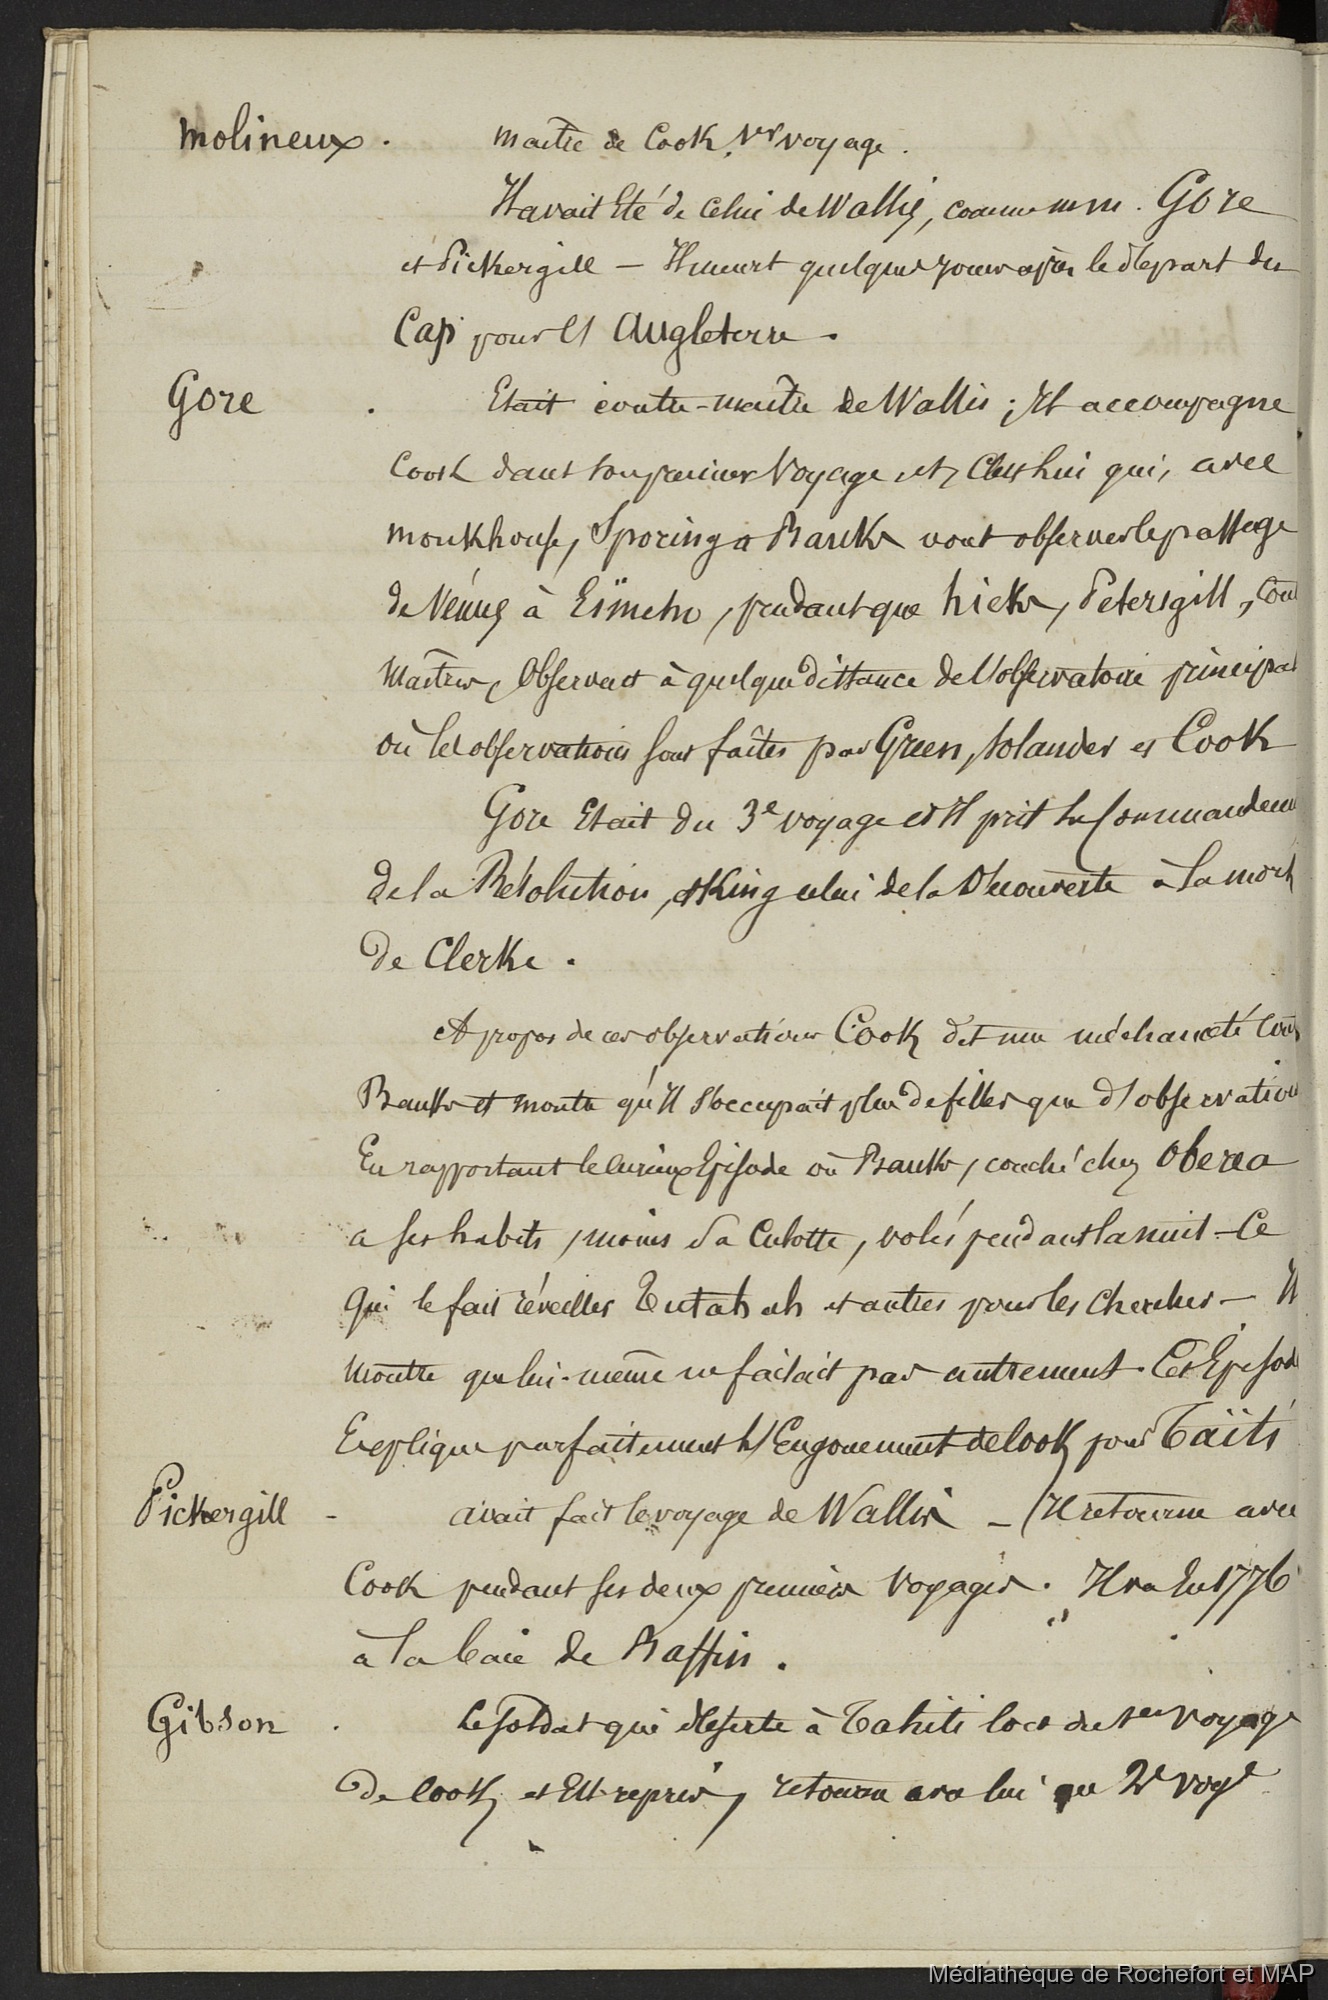 Molineux . Maître de Cook, 1er voyage.
Il avait Eté de celui de Wallis, comme mm. Gore
et Pickergill — Il meurt quelques jours après le départ du
Cap pour l'Angleterre .
Gore . Etait contre-maître de Wallis ; Il accompagne
Cook dans son premier Voyage et, C'est lui qui, avec
Monkhouse, Sporing et Banks vont observer le passage
de Vénus à Eïmeho, pendant que hicks, Petersgill,
Maîtres, Observent à quelque distance de l'observatoire principal
où les observations sont faîtes par Green, Solander et Cook
Gore Etait du 3e voyage et Il prit le Commandem
de la Résolution, et King celui de la Découverte à la mort
de Clerke .
A propos de ces observations Cook dit une méchanceté
Banks et montre qu'Il s'occupait plus de filles que d'observation
En rapportant le curieux Episode où Banks, couché chez Oberea
a ses habits, moins sa Culotte, volés pendant la nuit - Ce
qui le fait réveiller Tutahah et autres pour les chercher — Il
montre que lui-même ne faisait pas autrement. Cet Episode
Explique parfaitement l'Engouement de Cook pour Taïti
Pickergill - avait fait le voyage de Wallis — Il retourne avec
Cook pendant ses deux premiers Voyages . Il va En 1776
à la baie de Baffin .
Gibson . Le soldat qui déserte à Tahiti lors du 1er Voyage
de Cook, et Est repris, retourne avec lui au 2e voye
Médiathèque de Rochefort et MAP